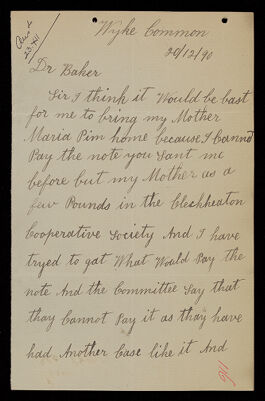 Wyke Common
20/12/90
Dr Baker
Sir I think it Would be bast
for me to bring my Mother
Maria Pim home because I Cannot
Pay the note you Sant me
before but my Mother as a
few Pounds in the Cleckheaton
Cooperative Society And I have
tryed to gat What Would Pay the
note And the Committee Say that
thay Cannot Pay it as thay have
had Another Case like it And